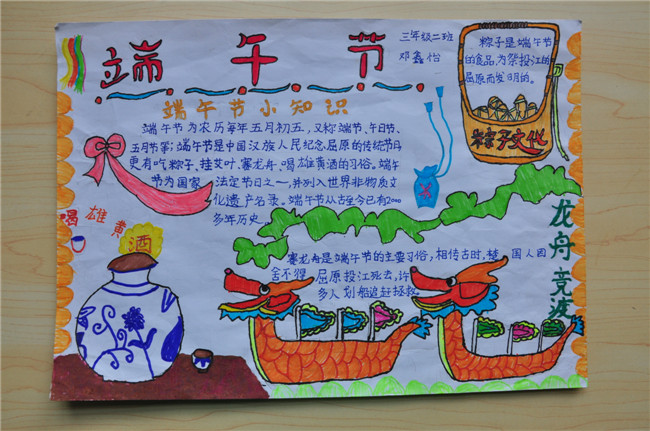 端午节
三年级二班
邓鑫怡
粽子是端午节
的食品,为祭投江的
屈原而发明的。
粽子文化
端午节小知识
端午节为农历每年五月初五,又称端节、午日节、
五月节等;端午节是中国汉族人民纪念屈原的传统节日
更有吃粽子、挂艾叶、赛龙舟、喝雄黄酒的习俗。端午
节为国家 法定节日之一,并列入世界非物质文
化遗产名录。端午节从古至今已有2000
多年历史
喝雄黄
酒
赛龙舟是端午节的主要习俗,相传古时,楚 国人因
舍不得 屈原投江死去,许
多人划船追赶拯救
龙舟竞渡